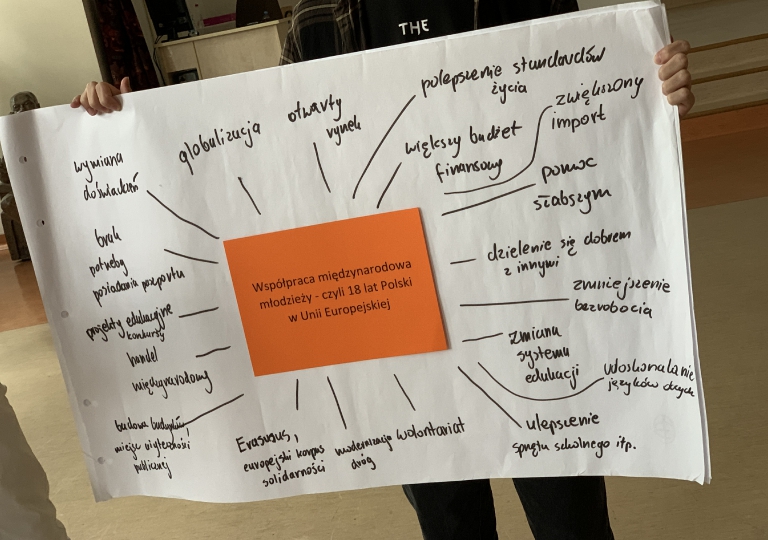 THE
polepszenie standardów
życia
zwiększony
import
otwarty
rynek
globalizacja
większy budżet
finansowy
wymiana
doświadczeń
pomoc
słabszym
brak
potrzeby
posiadania paszportu
dzielenie się dobrem
z innymi
Współpraca międzynarodowa
młodzieży - czyli 18 lat Polski
w Unii Europejskiej
zmniejszenie
bezrobocia
projekty edukacyjne
konkursy
handel
międzynarodowy
zmiana
systemu
edukacji
udoskonalanie
języków obcych
budowa budynków,
miejsc użyteczności
publicznej
Erasusus,
europejski korpus
solidarności
modernizacja
dróg
wolontariat
ulepszenie
sprzętu szkolnego itp.